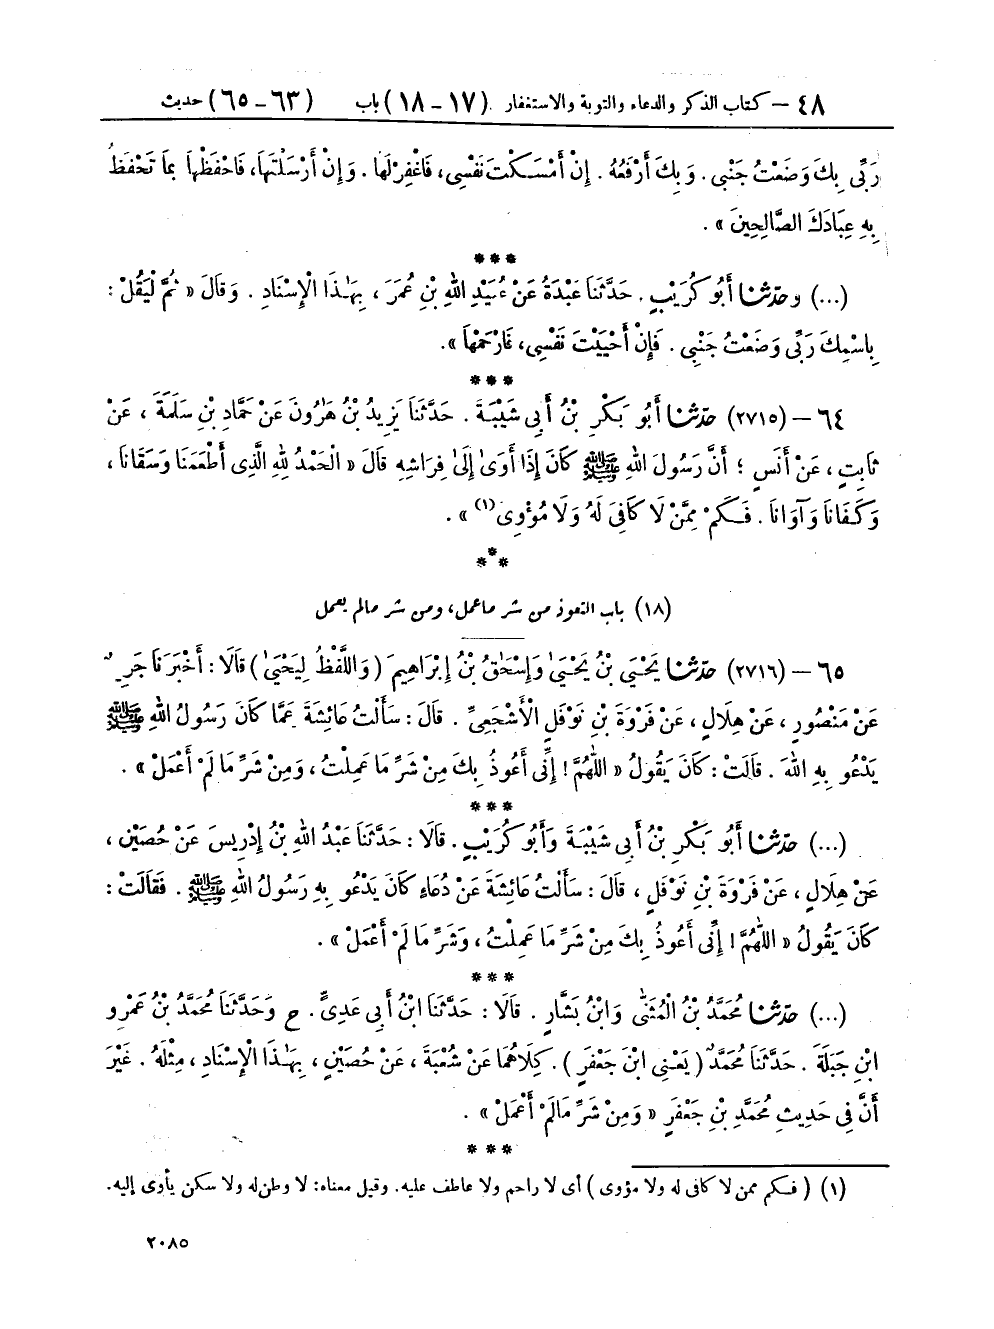 ٤٨ – كتاب الذكر والدعاء والتوبة والاستغفار (١٧ – ١٨) باب (٦٣ – ٦٥) حديث
رَبِّى بِكَ وَضَعْتُ جَنْبِى . وَبِكَ أَرْفَعُهُ . إِنْ أَمْسَكْتَ نَفْسِى، فَاغْفِرْ لَهَا . وَإِنْ أَرْسَلْتَهَا، فَاحْفَظْهَا بِمَا تَحْفَظُ
بِهِ عِبَادَكَ الصَّالِحِينَ » .
***
(...) وحدّثنا أَبُو كُرَيْبٍ . حَدَّثَنَا عَبْدَةُ عَنْ عُبَيْدِ اللهِ بْنِ عُمَرَ ، بِهَـٰذَا الْإِسْنَادِ . وَقَالَ « ثُمَّ لْيَقُلْ :
بِاسْمِكَ رَبِّى وَضَعْتُ جَنْبِى . فَإِنْ أَحْيَيْتَ نَفْسِى، فَارْحَمْهَا ».
***
٦٤ – (٢٧١٥) حدّثنا أَبُو بَكْرِ بْنُ أَبِى شَيْبَةَ . حَدَّثَنَا يَزِيدُ بْنُ هَـٰرُونَ عَنْ حَمَّادِ بْنِ سَلَمَةَ ، عَنْ
ثَابِتٍ ، عَنْ أَنَسٍ ؛ أَنَّ رَسُولَ اللهِ ﷺ كَانَ إِذَا أَوَىٰ إِلَىٰ فِرَاشِهِ قَالَ « الْحَمْدُ لِلهِ الَّذِى أَطْعَمَنَا وَسَقَانَا ،
وَكَفَانَا وَآوَانَا . فَكَمْ مِمَّنْ لَا كَافِىَ لَهُ وَلَا مُؤْوِىَ(١) » .
***
(١٨) باب التعوذ من شر ماعمل، ومن شر مالم يعمل
٦٥ – (٢٧١٦) حدّثنا يَحْيَىٰ بْنُ يَحْيَىٰ وَإِسْحَـٰقُ بْنُ إِبْرَاهِيمَ (وَاللَّفْظُ لِيَحْيَىٰ) قَالَا : أَخْبَرَنَا جَرِيرٌ
عَنْ مَنْصُورٍ ، عَنْ هِلَالٍ ، عَنْ فَرْوَةَ بْنِ نَوْفَلٍ الْأَشْجَعِىِّ . قَالَ : سَأَلْتُ عَائِشَةَ عَمَّا كَانَ رَسُولُ اللهِ ﷺ
يَدْعُو بِهِ اللهَ . قَالَتْ : كَانَ يَقُولُ « اللّٰهُمَّ ! إِنِّى أَعُوذُ بِكَ مِنْ شَرِّ مَا عَمِلْتُ ، وَمِنْ شَرِّ مَا لَمْ أَعْمَلْ » .
***
(...) حدّثنا أَبُو بَكْرِ بْنُ أَبِى شَيْبَةَ وَأَبُو كُرَيْبٍ . قَالَا : حَدَّثَنَا عَبْدُ اللهِ بْنُ إِدْرِيسَ عَنْ حُصَيْنٍ ،
عَنْ هِلَالٍ ، عَنْ فَرْوَةَ بْنِ نَوْفَلٍ ، قَالَ : سَأَلْتُ عَائِشَةَ عَنْ دُعَاءٍ كَانَ يَدْعُو بِهِ رَسُولُ اللهِ ﷺ . فَقَالَتْ :
كَانَ يَقُولُ « اللّٰهُمَّ ! إِنِّى أَعُوذُ بِكَ مِنْ شَرِّ مَا عَمِلْتُ ، وَشَرِّ مَا لَمْ أَعْمَلْ » .
***
(...) حدّثنا مُحَمَّدُ بْنُ الْمُثَنَّىٰ وَابْنُ بَشَّارٍ . قَالَا : حَدَّثَنَا ابْنُ أَبِى عَدِىٍّ . ح وَحَدَّثَنَا مُحَمَّدُ بْنُ عَمْرِو
ابْنِ جَبَلَةَ . حَدَّثَنَا مُحَمَّدٌ (يَعْنِى ابْنَ جَعْفَرٍ) . كِلَاهُمَا عَنْ شُعْبَةَ ، عَنْ حُصَيْنٍ ، بِهَـٰذَا الْإِسْنَادِ ، مِثْلَهُ . غَيْرَ
أَنَّ فِى حَدِيثِ مُحَمَّدِ بْنِ جَعْفَرٍ « وَمِنْ شَرِّ مَالَمْ أَعْمَلْ » .
***
(١) ( فكم ممن لا كافى له ولا مؤوى ) أى لا راحم ولا عاطف عليه. وقيل معناه: لا وطن له ولا سكن يأوى إليه.
٢٠٨٥